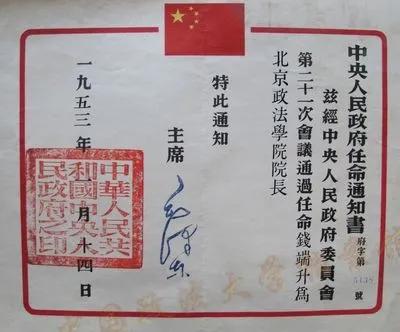 中央人民政府任命通知書
府字第 號
茲經中央人民政府委員會
第二十一次會議通過任命錢端升爲
北京政法學院院長
特此通知
主席
毛澤東
一九五三年 月十四日
中華人民共
和國中央人
民政府之印